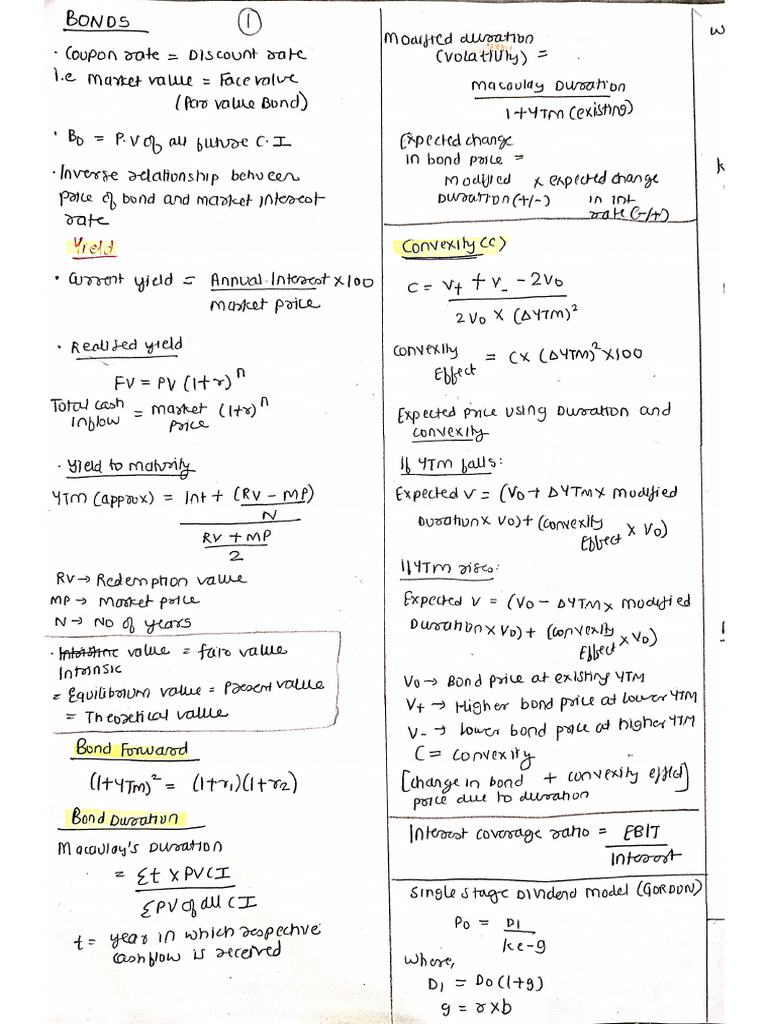 BONDS
1
· Coupon rate = Discount rate
i.e market value = Face value
(Par value Bond)
· B0 = P.V of all future C.I
· Inverse relationship between
price of bond and market interest
rate
Yield
· Current yield = Annual Interest x100
market price
· Realised yield
FV = PV (1+r)^n
Total cash inflow = market price (1+r)^n
· Yield to maturity
YTM (approx) = Int + (RV - MP)
N
RV + MP
2
RV → Redemption value
MP → Market price
N → No of years
· Intrinsic value = fair value
= Equilibrium value = Present value
= Theoretical value
Bond Forward
(1+YTM)² = (1+r1)(1+r2)
Bond Duration
Macaulay's Duration
= Σt x PVCI
ΣPV of all CI
t = year in which respective
cashflow is received
Modified duration
(volatility) =
Macaulay Duration
1+YTM (existing)
Expected change
in bond price =
modified x expected change
Duration (+/-) in int
rate (-/+)
Convexity (C)
C = V+ + V- - 2V0
2V0 x (ΔYTM)²
Convexity Effect = C x (ΔYTM)² x 100
Expected price using Duration and
convexity
If YTM falls:
Expected V = (V0 + ΔYTM x modified
Duration x V0) + (convexity Effect x V0)
If YTM rises:
Expected V = (V0 - ΔYTM x modified
Duration x V0) + (convexity Effect x V0)
V0 → Bond price at existing YTM
V+ → Higher bond price at lower YTM
V- → lower bond price at higher YTM
C = convexity
[change in bond + convexity effect]
price due to duration
Interest coverage ratio = EBIT
Interest
Single stage Dividend model (GORDON)
P0 = D1
ke-g
where,
D1 = D0 (1+g)
g = r x b